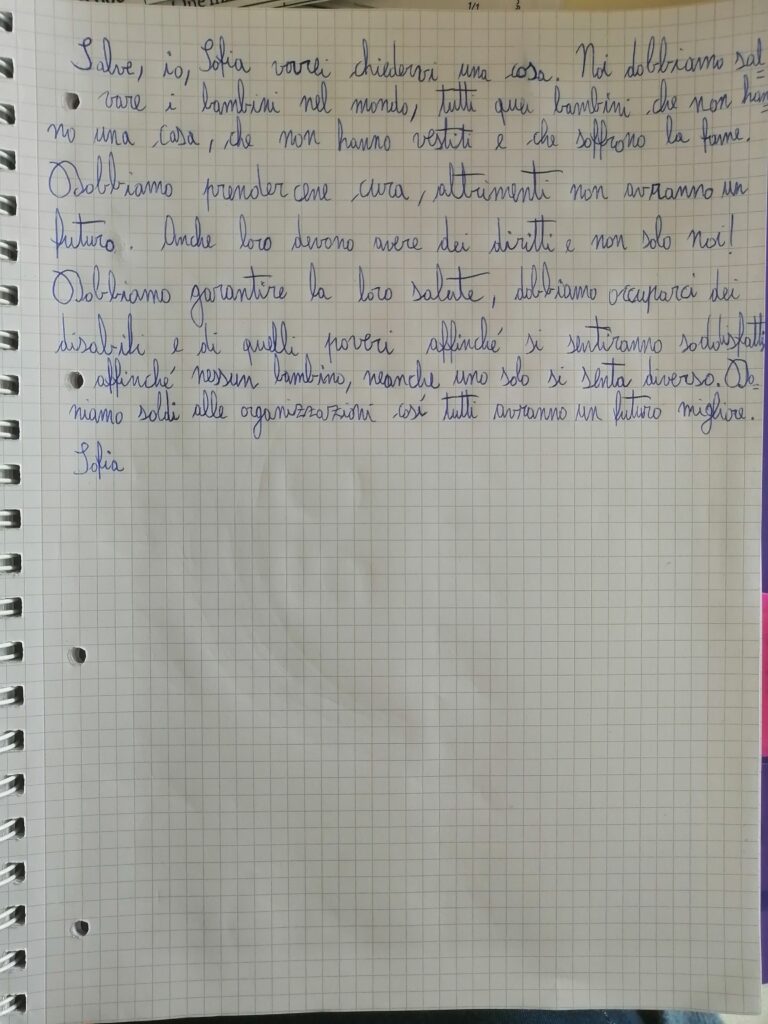 Salve, io, Sofia vorrei chiedervi una cosa. Noi dobbiamo sal=
vare i bambini nel mondo, tutti quei bambini che non han=
no una casa, che non hanno vestiti e che soffrono la fame.
Dobbiamo prendercene cura, altrimenti non avranno un
futuro. Anche loro devono avere dei diritti e non solo noi!
Dobbiamo garantire la loro salute, dobbiamo occuparci dei
disabili e di quelli poveri affinché si sentiranno soddisfatti,
affinché nessun bambino, neanche uno solo si senta diverso. Do=
niamo soldi alle organizzazioni cosí tutti avranno un futuro migliore.
Sofia